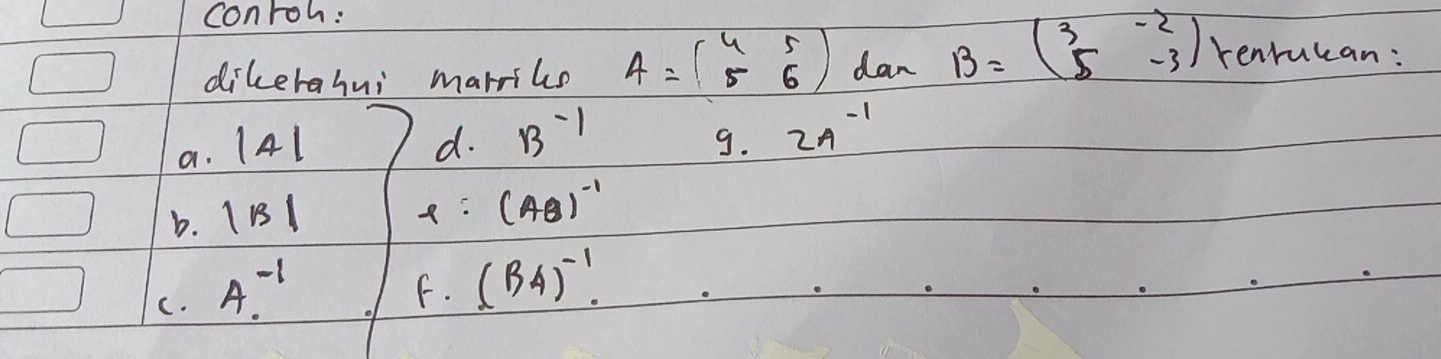 contoh:
diketahui matriks A = (4 5 5 6) dan B = (3 -2 5 -3) tentukan:
a. |A| d. B⁻¹ g. 2A⁻¹
b. |B| e: (AB)⁻¹
c. A⁻¹ f. (BA)⁻¹